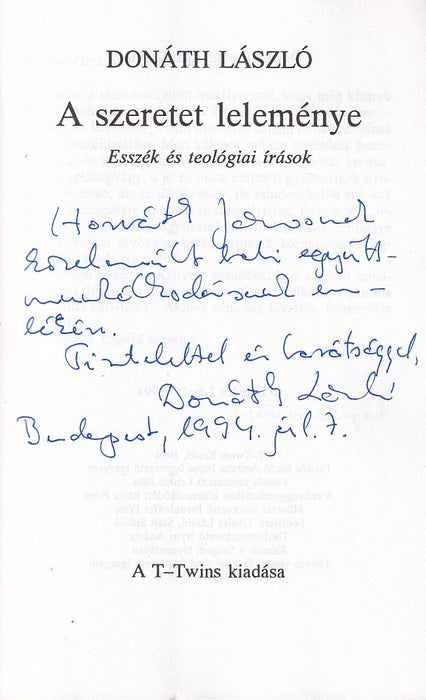 DONÁTH LÁSZLÓ
A szeretet leleménye
Esszék és teológiai írások
Horváth Jánosnak
közelmúlt heti együtt-
munkálkodásunk em-
lékén.
Tisztelettel és barátsággel,
Donáth László
Budapest, 1994. júl. 7.
A T–Twins kiadása